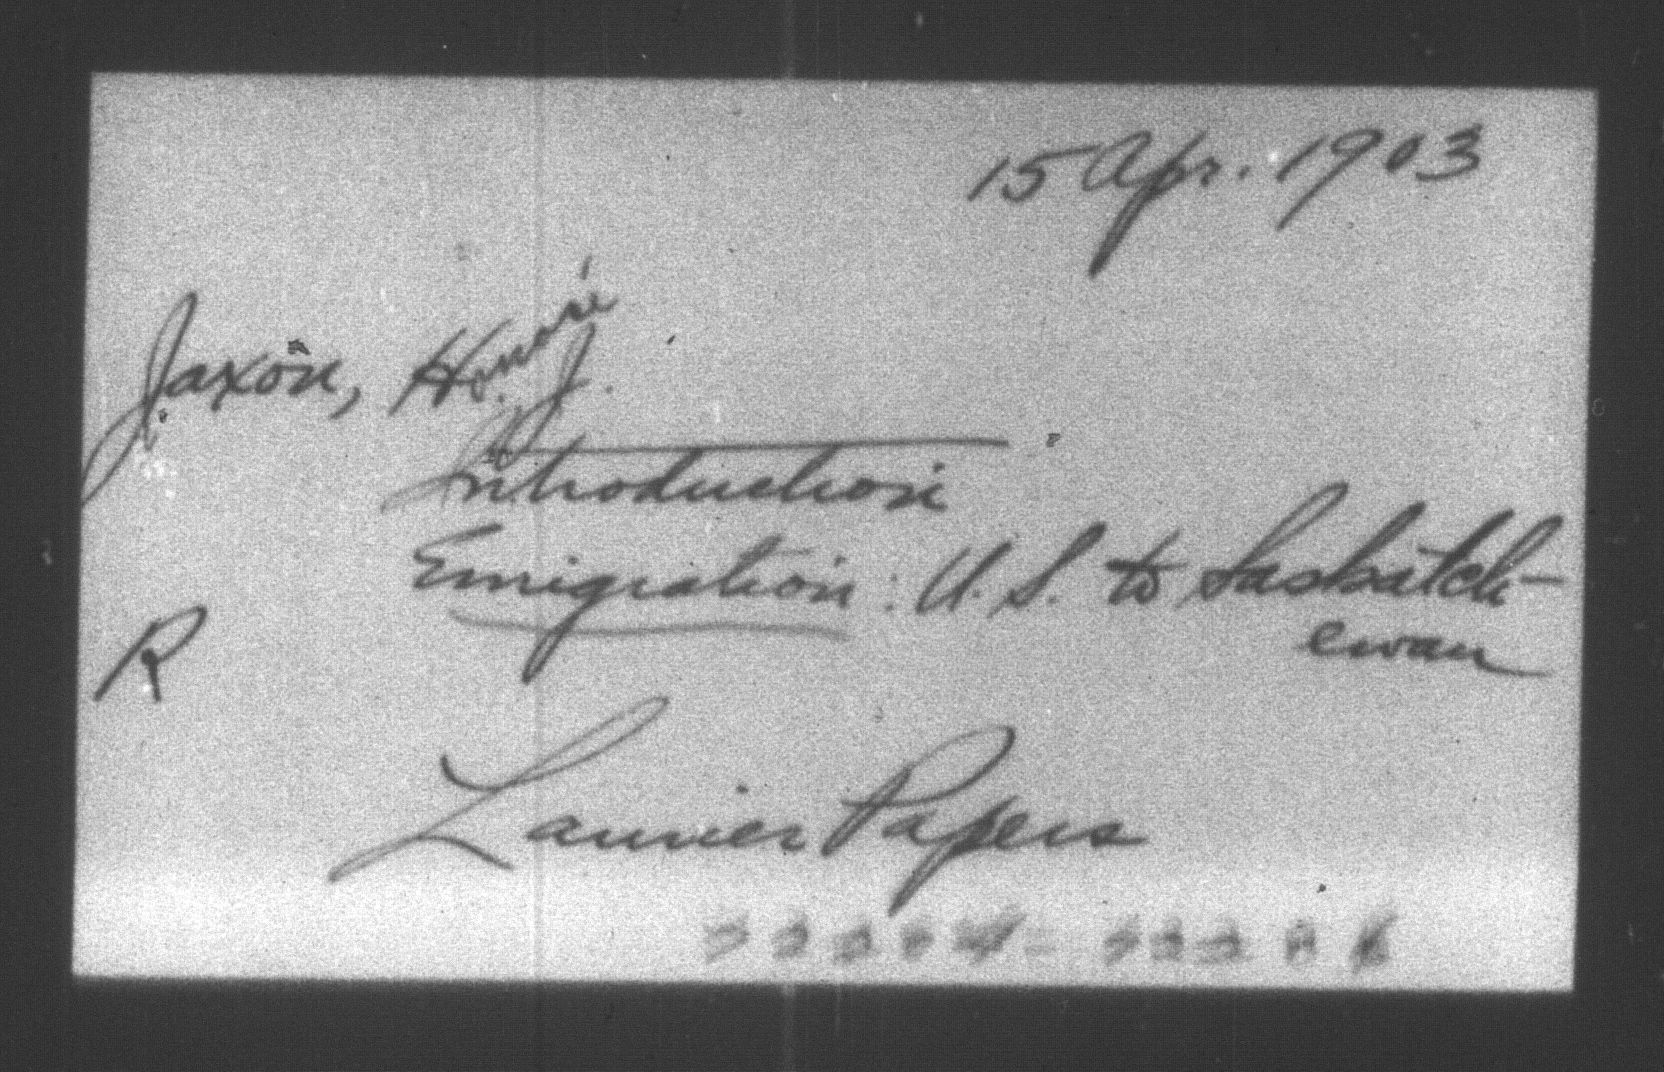 15 Apr. 1903
Jaxon, Honoré J.
Introduction
Emigration: U.S. to Saskatch-
ewan
R
Laurier Papers